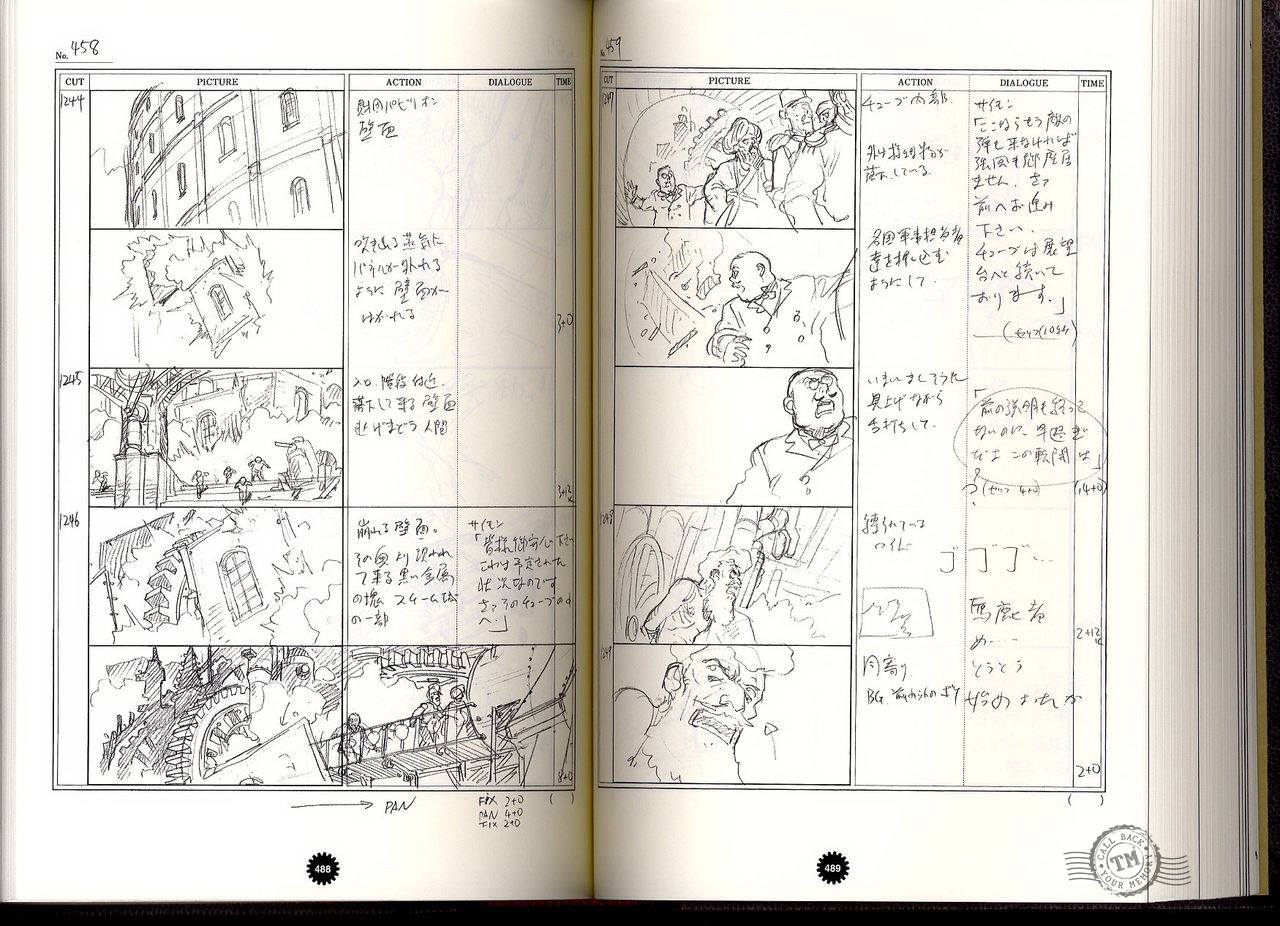 No. 458
CUT
PICTURE
ACTION
DIALOGUE
TIME
1244
財団パビリオン
壁面
吹き出る蒸気に
パネルが外れる
ように 壁面が
はがれる
3+0
1245
入口 階段付近
落下して来る壁面
逃げまどう人間
3+12
1246
崩れる壁面。
その奥より現われ
て来る黒い金属
の塊 スチーム城
の一部
サイモン
「皆様御安心下さい
これは予定された
状況なのです
さっそのチューブの中
へ」
8+0
PAN
FIX 2+0
PAN 4+0
FIX 2+0
( )
488
No. 459
CUT
PICTURE
ACTION
DIALOGUE
TIME
1247
チューブ内部
落下している
各国軍事担当者
達を押し込む
ようにして
サイモン
「ここならもう敵の
弾も来なければ
強風も御座居
ません、さっ
前へお進み
下さい、
チューブは展望
台へと続いて
おります。」
(セリフ10秒)
いまいましそうに
見上げながら
舌打ちして
「前の説明も終って
ないのに、早過ぎ
この展開は」
(セリフ 4+0)
(14+0)
1248
縛られている
ロイド
ゴゴゴ…
馬鹿者
め……
2+12
1249
同寄り
とうとう
始めおったか
2+0
( )
489
CALL BACK
TM
YOUR MEMORY